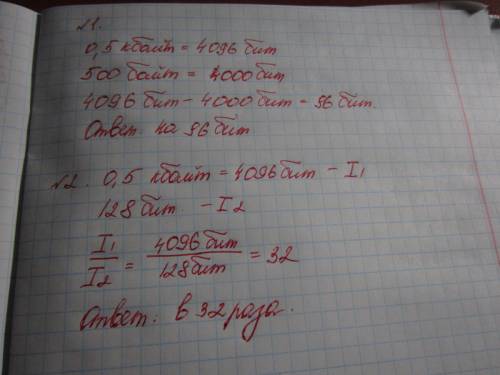 №1.
0,5 кбайт = 4096 бит
500 байт = 4000 бит
4096 бит - 4000 бит = 96 бит.
Ответ: на 96 бит
№2. 0,5 кбайт = 4096 бит - I₁
128 бит - I₂
I₁/I₂ = 4096 бит/128 бит = 32
Ответ: в 32 раза.